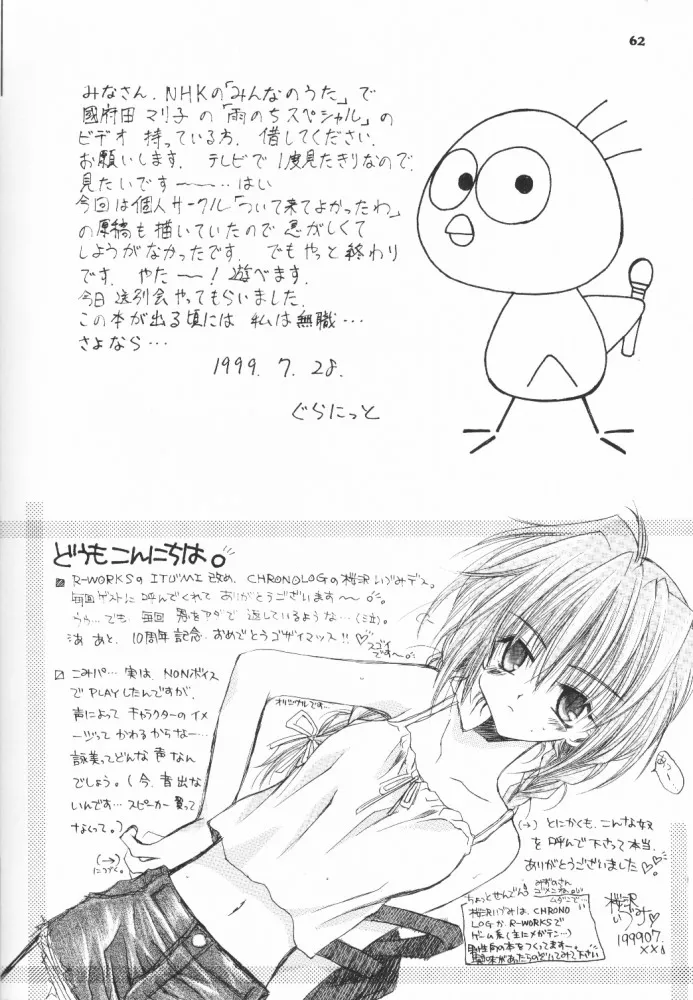 62
みなさん、NHKの「みんなのうた」で
國府田マリ子の「雨のちスペシャル」の
ビデオ 持っている方、借してください。
お願いします。 テレビで1度見たきりなので、
見たいです〜〜‥はい
今回は個人サークル「ついて来てよかったわ」
の原稿も描いていたので 忙がしくて
しようがなかったです。 でもやっと終わり
です。 やた〜〜! 遊べます。
今日 送別会やってもらいました。
この本が出る頃には 私は無職…
さよなら…
1999. 7. 28.
ぐらにっと
どうもこんにちは。
R-WORKSのITUMI改め、CHRONOLOGの桜沢いづみデス。
毎回ゲストに呼んでくれてありがとうございます〜〜。
うぅ…でも、毎回 恩をアダで返しているような…(泣)。
あ、あと、10周年記念、おめでとうゴザイマッス!!♡
スゴイ
です〜。
こみパ… 実は NONボイス
でPLAYしたんですが、
声によって キャラクターのイメ
ージってかわるからなー…
詠美ってどんな声なん
でしょう。(今、音出な
いんです… スピーカー買って
なくって。)
(→)
につづく。
オリジナルです…
(→) とにかくも、こんな奴
を呼んで下さって本当、
ありがとうございました♡♡
ちょっとせんでん。
みずのさん
ゴメンネ。
桜沢いづみは、CHRONO
LOGか、R-WORKSで
ゲーム系(主にメガテン…)
男性向の本をつくってますー。
興味があったらのぞいてみて下さい
桜沢
いづみ♡
199907.
××。